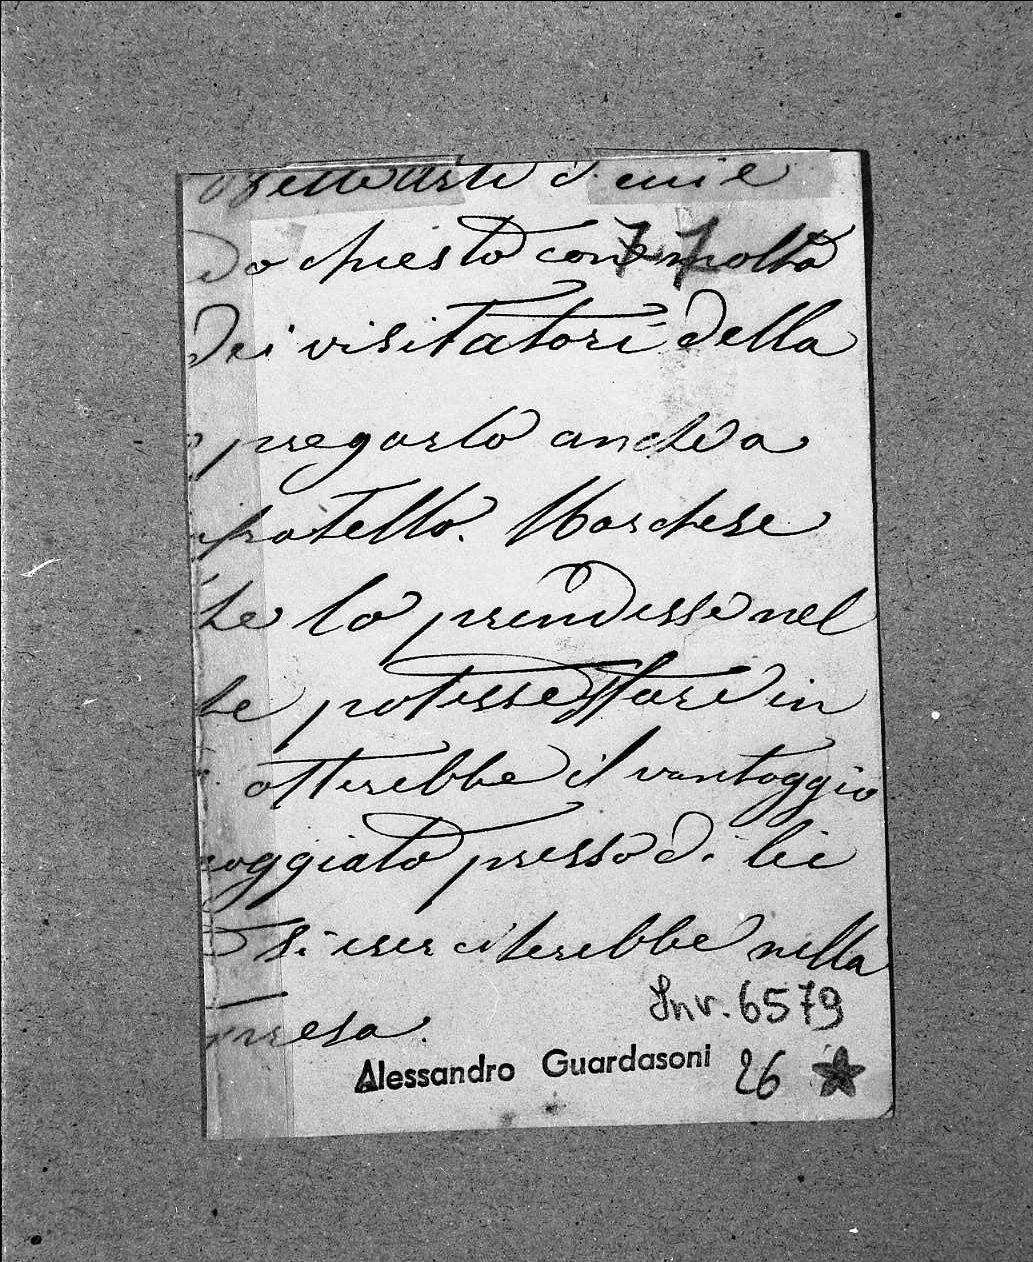 di cui è
do chiesto con molta
dei visitatori della
pregarlo anche a
fratello. Marchese
he lo prendesse nel
he potesse stare in
otterebbe il vantaggio
oggiato presso di lei
si eserciterebbe nella
presa.
77
Inv. 6579
Alessandro Guardasoni
26